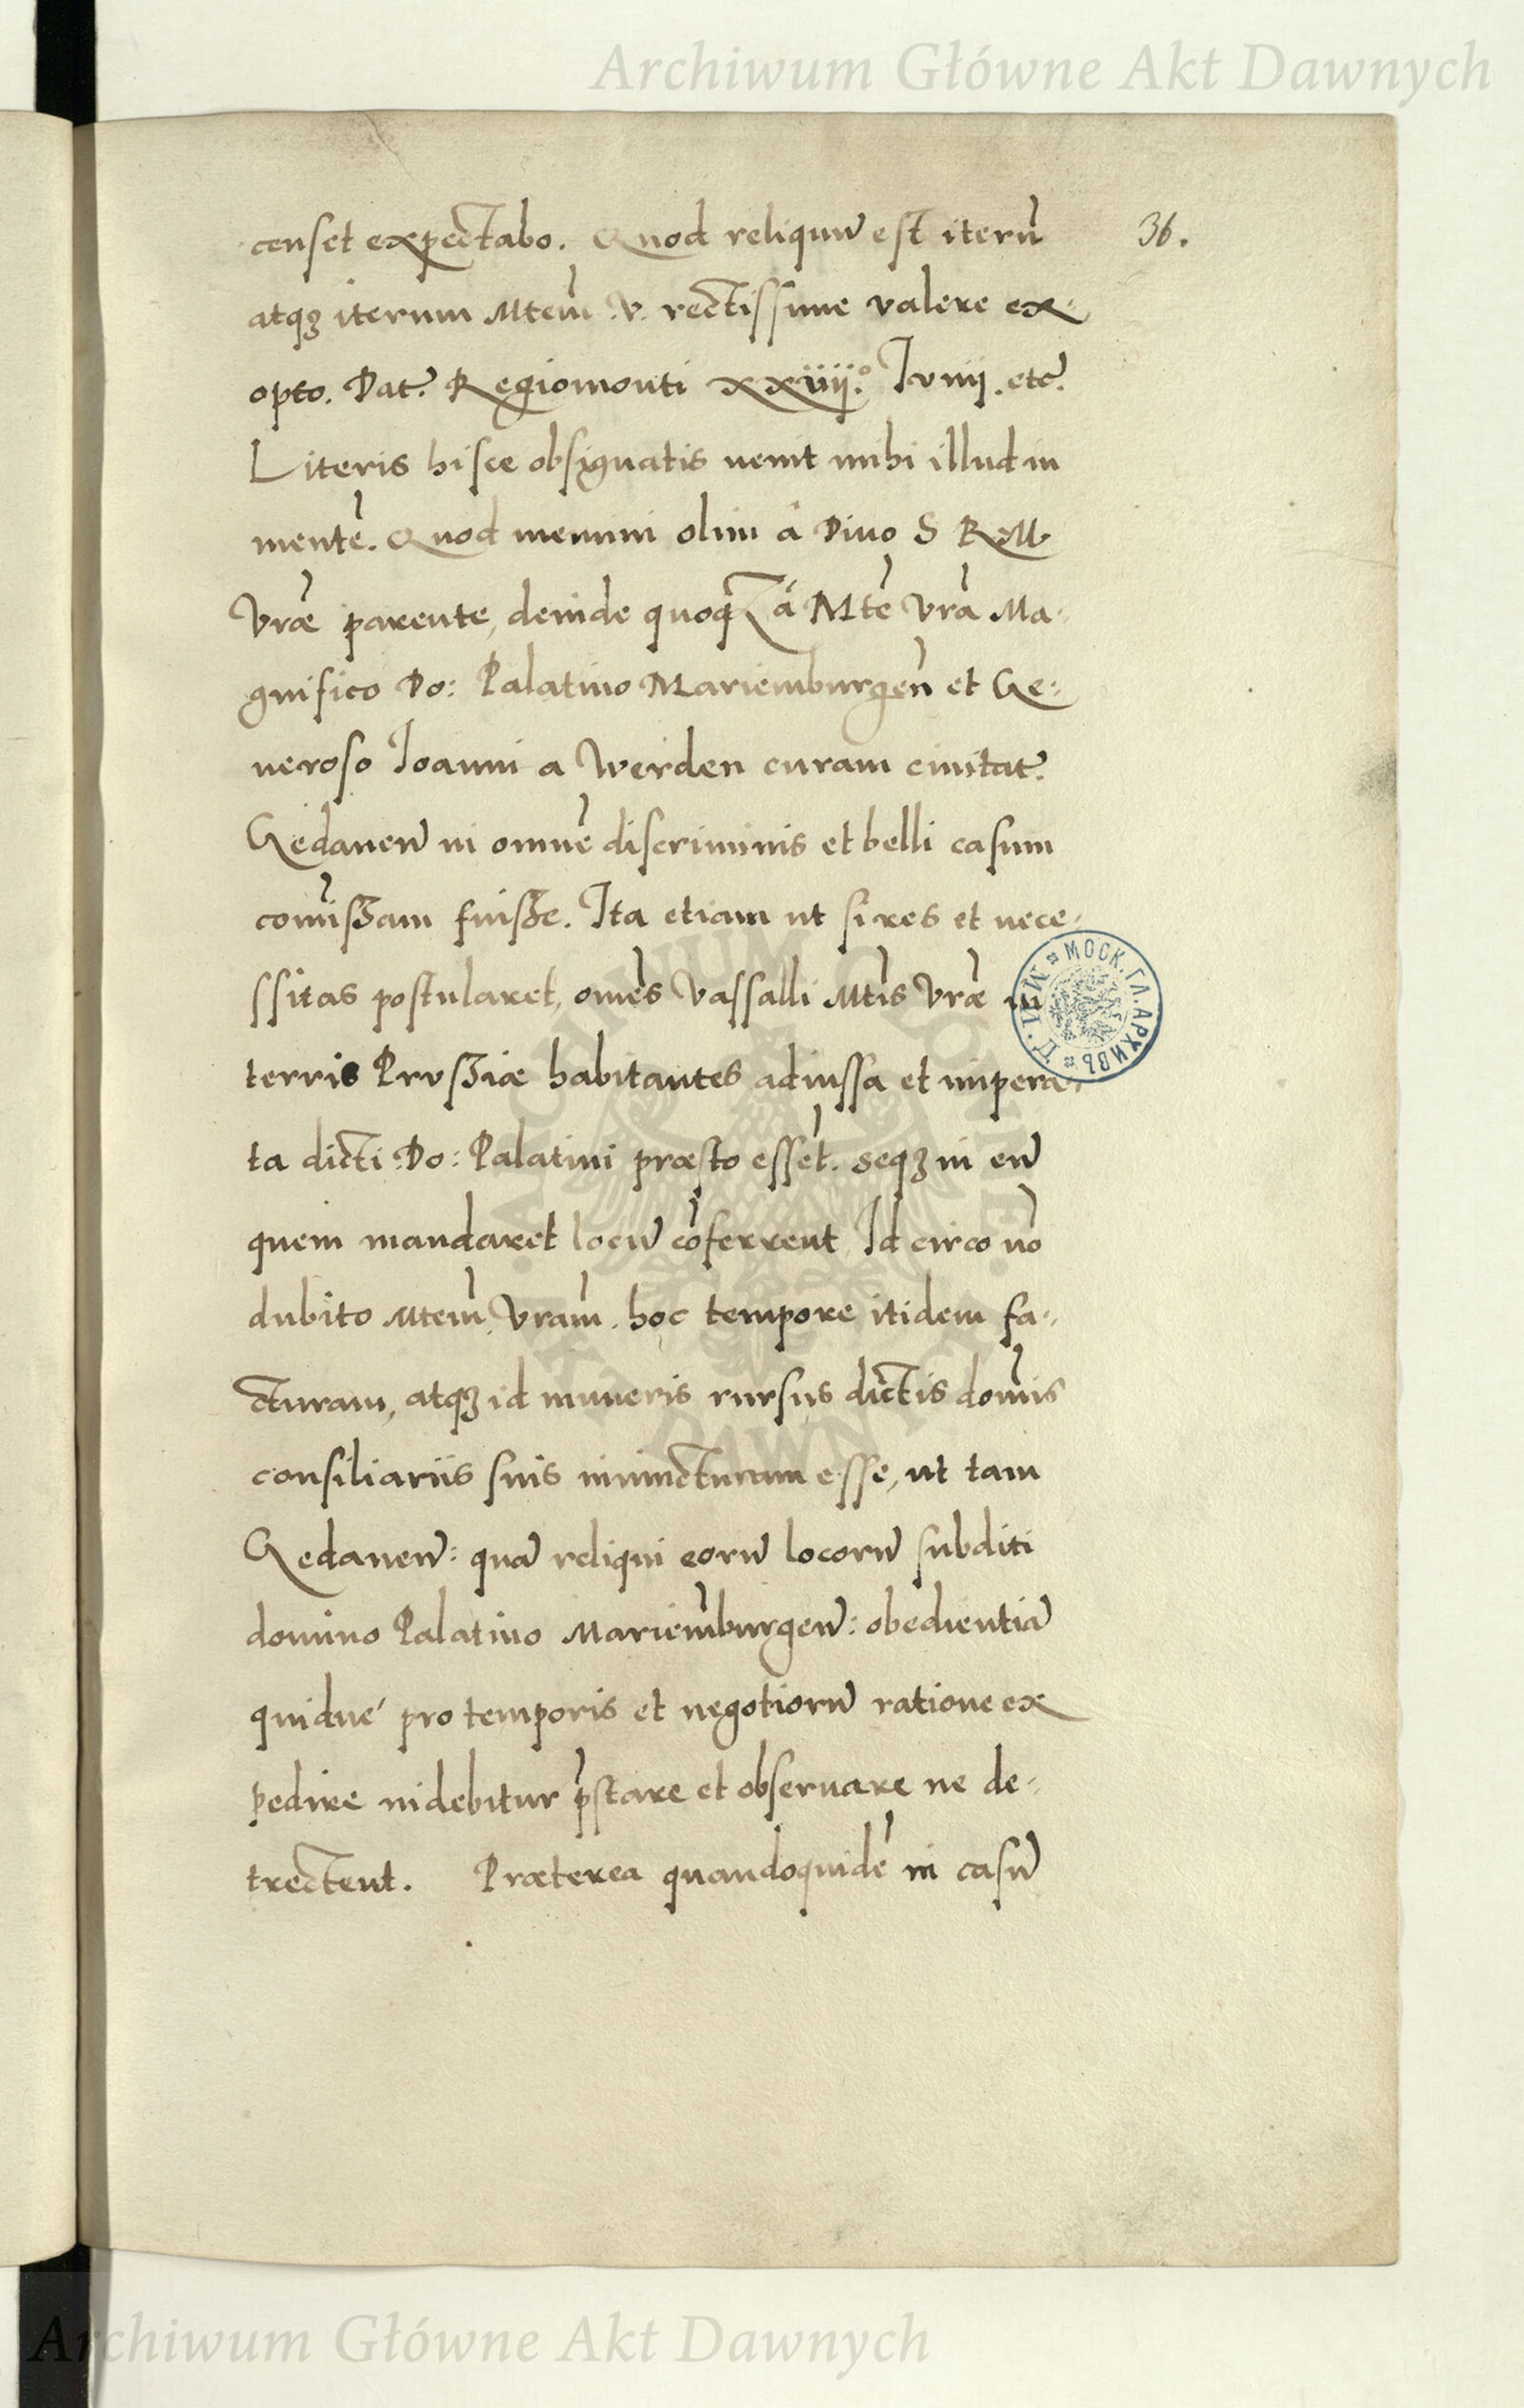 Archiwum Główne Akt Dawnych
36.
censet expectabo. Quod reliquũ est iterũ
atqꝫ iterum Mtem̃ .V. rectissime valere ex-
opto. Dat̃. Regiomonti xxiiij.º Iunij. etc̃.
Literis hisce obsignatis venit mihi illud in
mentẽ. Quod memini olim à Diuo S R M
Vrãe parente, deinde quoqꝫ à Mtẽ Vrã Ma-
gnifico Do: Palatino Mariemburgeñ et Ge-
neroso Ioanni a Werden curam ciuitat̃.
Gedaneñ in omnẽ discriminis et belli casum
com̃issam fuisse. Ita etiam ut si res et nece-
ssitas postularet, omẽs Vassalli Mtĩs Vrãe in
terris Prussiæ habitantes ad iussa et impera-
ta dicti Do: Palatini præsto essẽt. seqꝫ in eũ
quem mandaret locũ cõferrent Id circo nõ
dubito Mtem̃ Vram̃. hoc tempore itidem fa-
cturam, atqꝫ id muneris rursus dictis dom̃is
consiliariis suis iniuncturam esse, ut tam
Gedaneñ: quã reliqui eorũ locorũ subditi
domino Palatino Mariem̃burgeñ: obedientiã
quidué pro temporis et negotiorũ ratione ex
pedire uidebitur p̃stare et obseruare ne de-
trectent. Præterea quandoquidẽ in casũ
МОСК. ГЛ. АРХИВЪ М. И. Д.
ARCHIWUM GŁÓWNE AKT DAWNYCH
Archiwum Główne Akt Dawnych